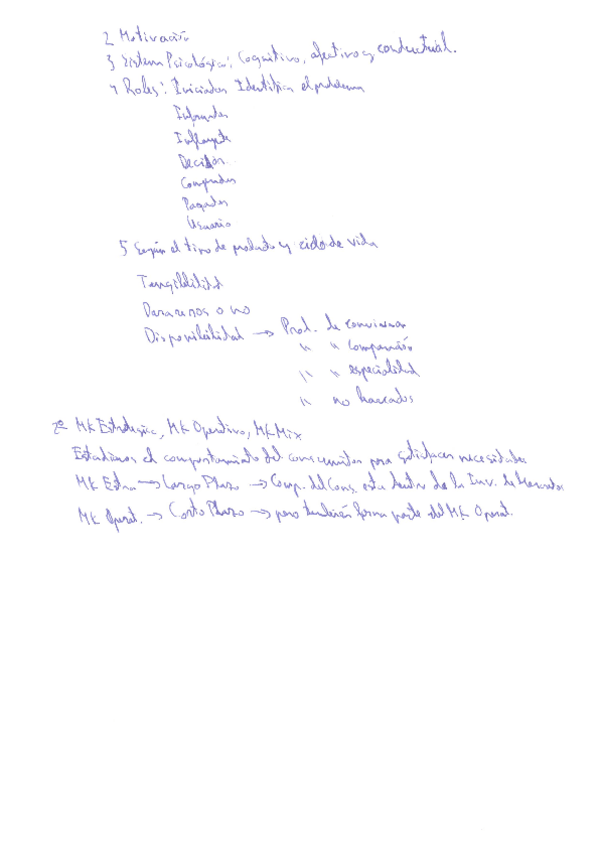 2 Motivación
3 Sistema Psicológico: Cognitivo, afectivo y conductual.
4 Roles: Iniciador Identifica el problema
Informador
Influyente
Decisor.
Comprador
Pagador
Usuario
5 Según el tipo de producto y ciclo de vida
Tangibilidad
Duraderos o no
Disponibilidad → Prod. de conveniencia
" " comparación
" " especialidad
" " no buscados
2º MK Estrategico, MK Operativo, MK Mix
Estudiamos el comportamiento del consumidor para satisfacer necesidades
MK Estra. → Largo Plazo → Comp. del Cons. esta dentro de la Inv. de Mercados
MK Operat. → Corto Plazo → pero también forma parte del MK Operat.